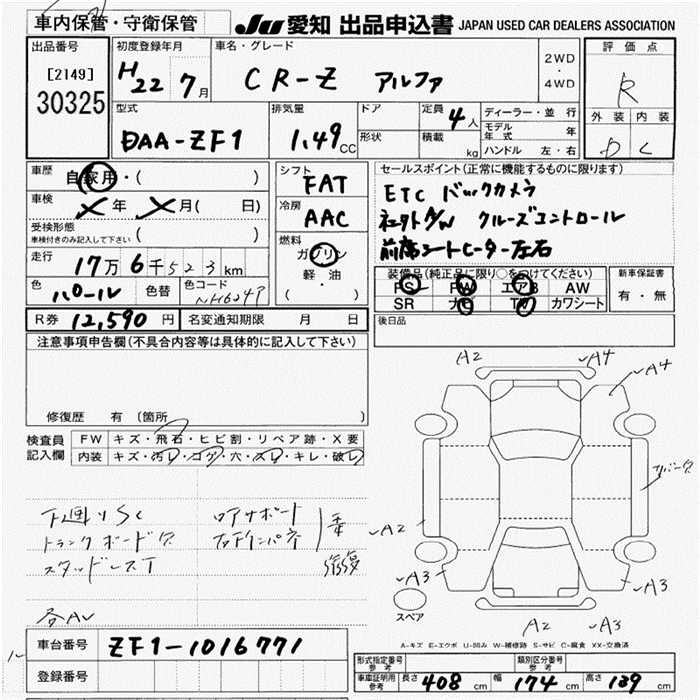 車内保管・守衛保管
JU 愛知 出品申込書 JAPAN USED CAR DEALERS ASSOCIATION
出品番号
[2149]
30325
初度登録年月
H22 7月
車名・グレード
CR-Z アルファ
2WD
・
4WD
評価点
R
外装 内装
D C
型式
DAA-ZF1
排気量
1.49 CC
ドア
形状
定員 4人
積載 kg
ディーラー・並行
モデル年式 年
ハンドル 左・右
車歴
自家用・( )
車検
年 月( 日)
受検形態
車検付きのみ記入して下さい ( )
走行
17万6千523km
色
パール
色替
色コード
NH624P
シフト
FAT
冷房
AAC
燃料
ガソリン
軽・油
( )
セールスポイント(正常に機能するものに限ります)
ETC バックカメラ
社外A/W クルーズコントロール
前席シートヒーター左右
装備品(純正品に限り○をつけてください)
PS PW エアB AW
SR ナビ TV カワシート
新車保証書
有・無
R券 12,590円
名変通知期限 月 日
後日品
注意事項申告欄(不具合内容等は具体的に記入して下さい)
修復歴 有 (箇所 )
検査員
記入欄
FW キズ・飛石・ヒビ割・リペア跡・X要
内装 キズ・汚レ・コゲ・穴・スレ・キレ・破レ
下廻りSC
トランクボードヌケ
スタッドレスT
ロアサポート
右下インパネ
各AU
A2
A4
A4
A2
A3
A3
A2
A3
スペア
車台番号 ZF1-1016771
登録番号
A-キズ E-エクボ U-凹み W-補修跡 S-サビ C-腐食 XX-交換済
形式指定番号
参考
類別区分番号
参考
車庫証明用
参考
長さ 408 cm 幅 174 cm 高さ 139 cm